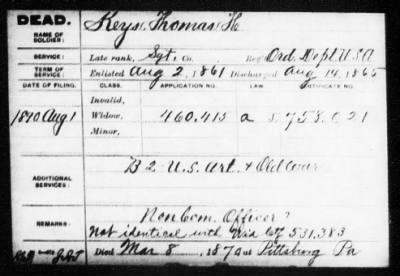 DEAD.
NAME OF SOLDIER:
Keys, Thomas H
SERVICE:
Late rank, Sgt, Co. Reg't Ord. Dept. U.S.A
TERM OF SERVICE:
Enlisted Aug 2, 1861 Discharged Aug 14, 1865
DATE OF FILING. CLASS. APPLICATION NO. LAW. CERTIFICATE NO.
Invalid,
1890 Aug 1 Widow, 460.415 a
Minor,
ADDITIONAL SERVICES:
B 2 - U.S. Art. & Old War
REMARKS:
Non Com. Officer?
Not identical with 531,383
Died Mar 8, 187 at Pittsburg Pa